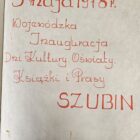 3 maja 1978 r.
Wojewódzka
Inauguracja
Dni Kultury Oświaty
Książki i Prasy
SZUBIN